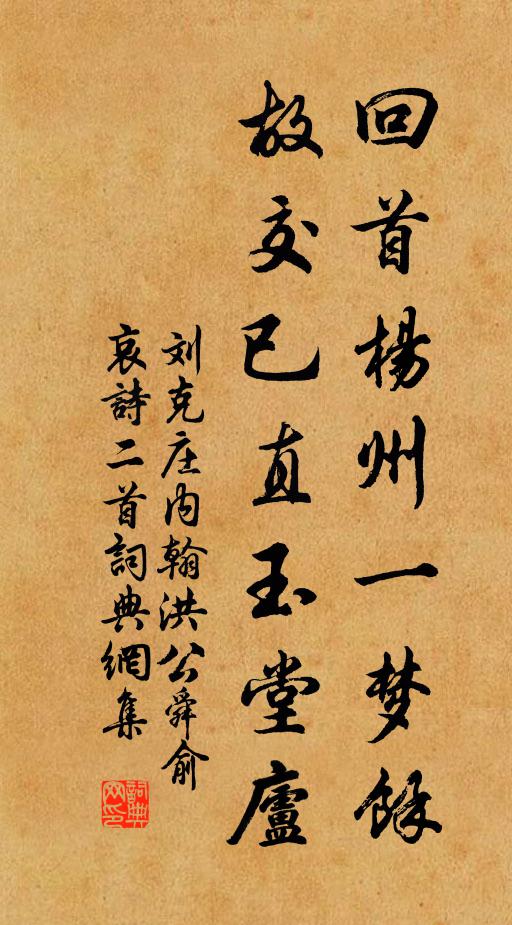 回首楊州一梦餘
故交已直玉堂廬
刘克庄内翰洪公舜俞
哀詩二首詞典網集
詞典
网印